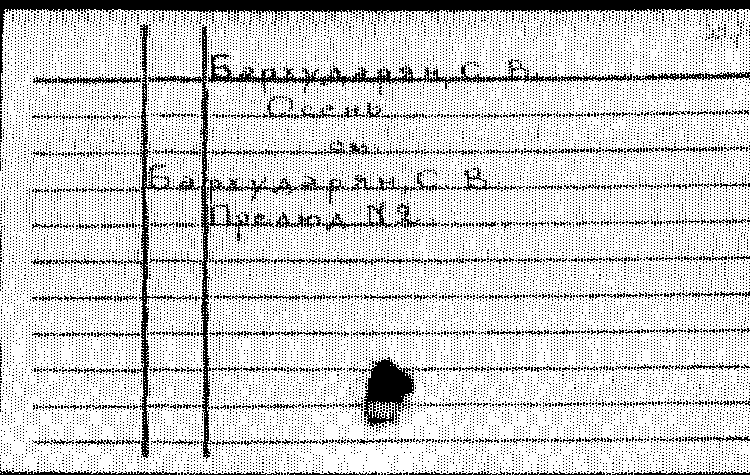 Бархударян, С. В.
Осень
см.
Бархударян, С. В.
Прелюд №2